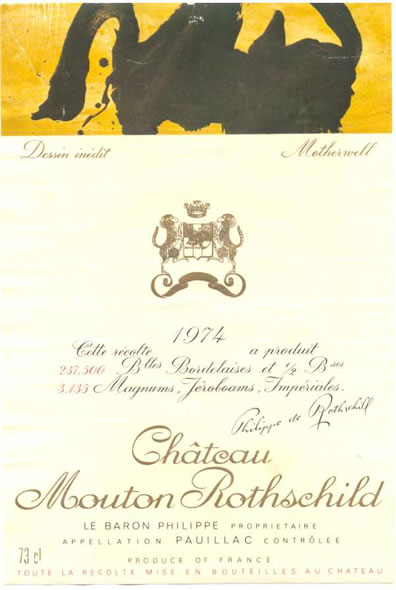 Dessin inédit Motherwell
1974
Cette récolte a produit
237.500 Blles Bordelaises et 1/2 Bses
3.135 Magnums, Jéroboams, Impériales.
Philippe de Rothschild
Château
Mouton Rothschild
LE BARON PHILIPPE PROPRIETAIRE
APPELLATION PAUILLAC CONTRÔLÉE
73 cl
PRODUCE OF FRANCE
TOUTE LA RECOLTE MISE EN BOUTEILLES AU CHATEAU